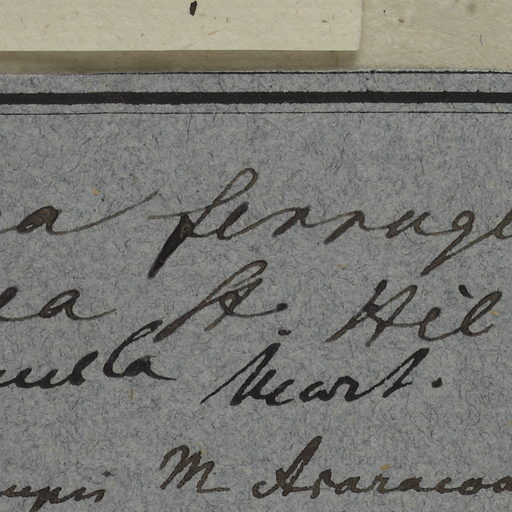 ea ferruge
ea St. Hil
uesla Mart.
upis M Araracoa